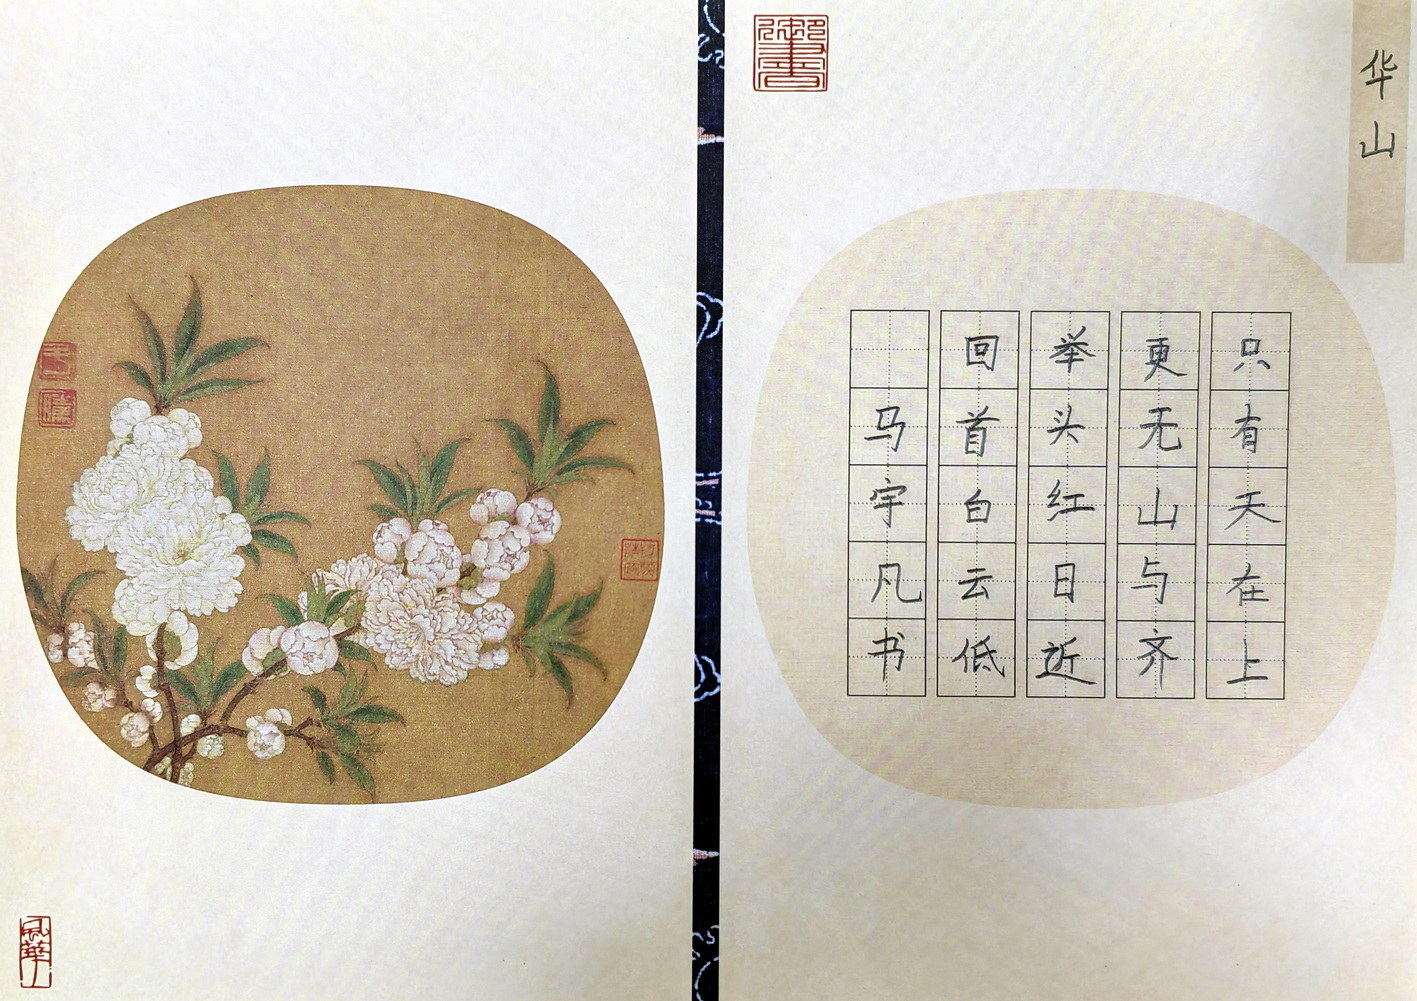 华山
只有天在上
更无山与齐
举头红日近
回首白云低
马宇凡书